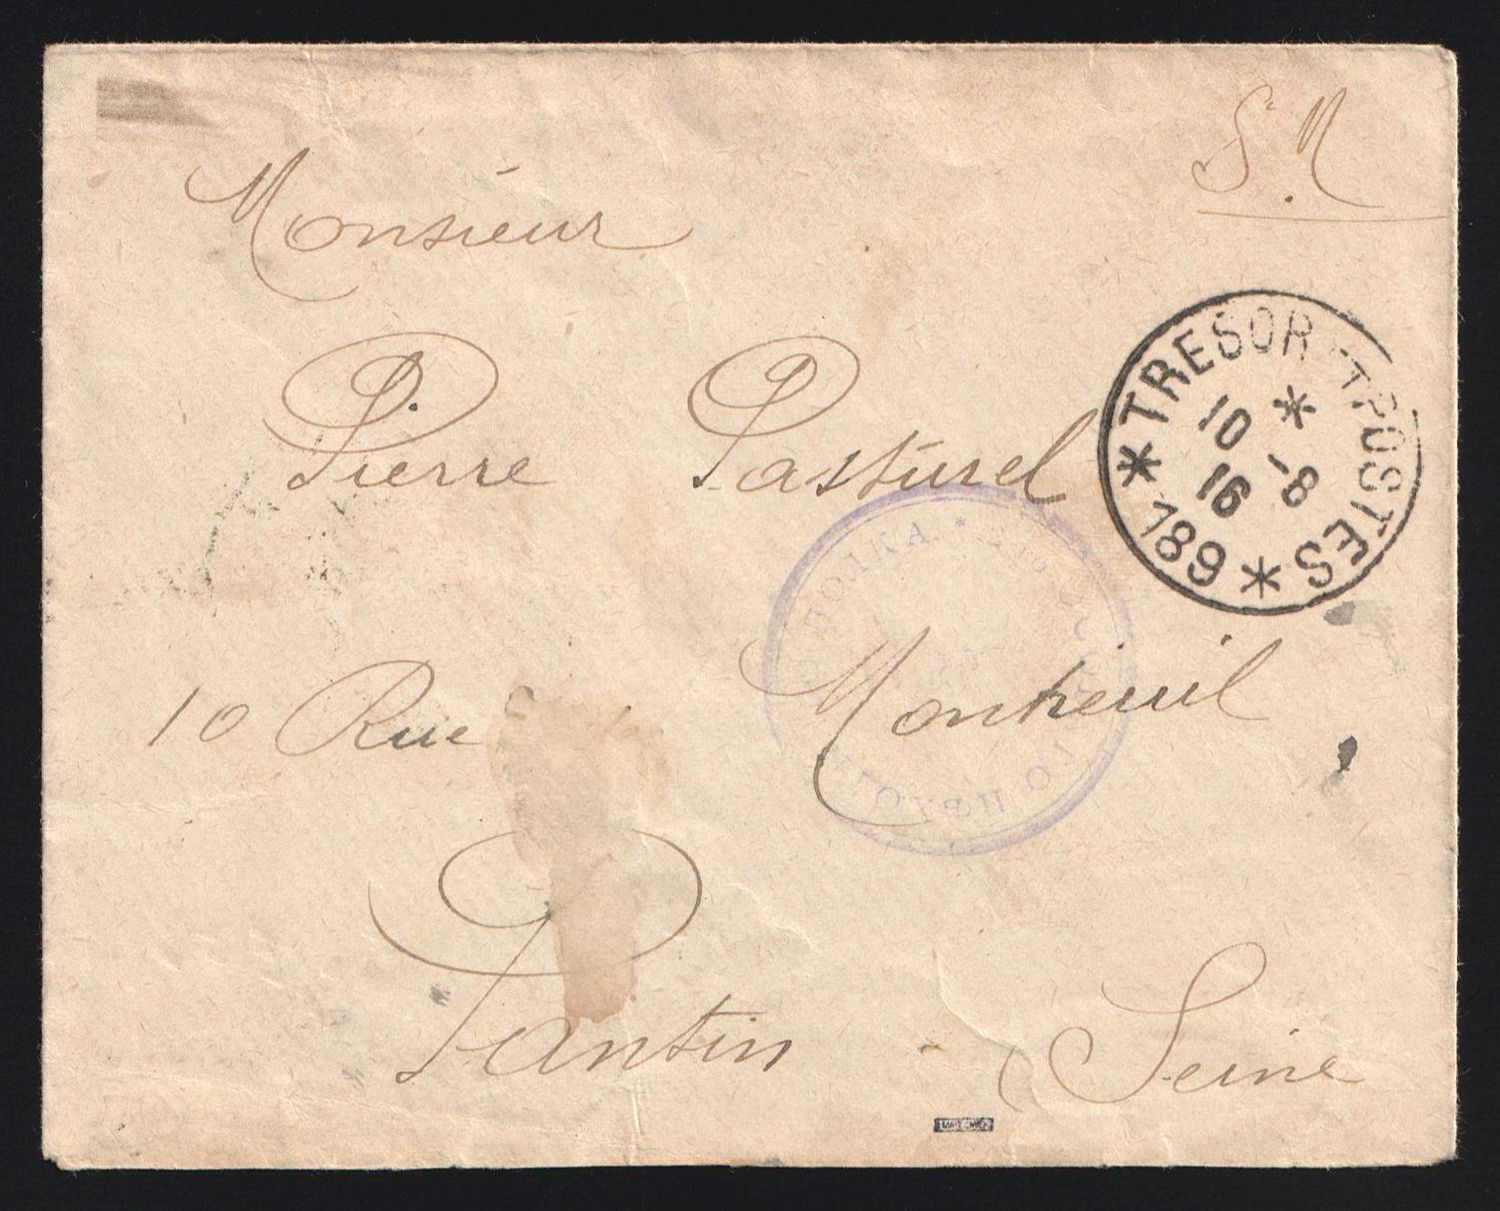 S. M
Monsieur
Pierre Pasturel
10 Rue Montreuil
Pantin Seine
* TRESOR ET POSTES *
189
*
10 -8
16